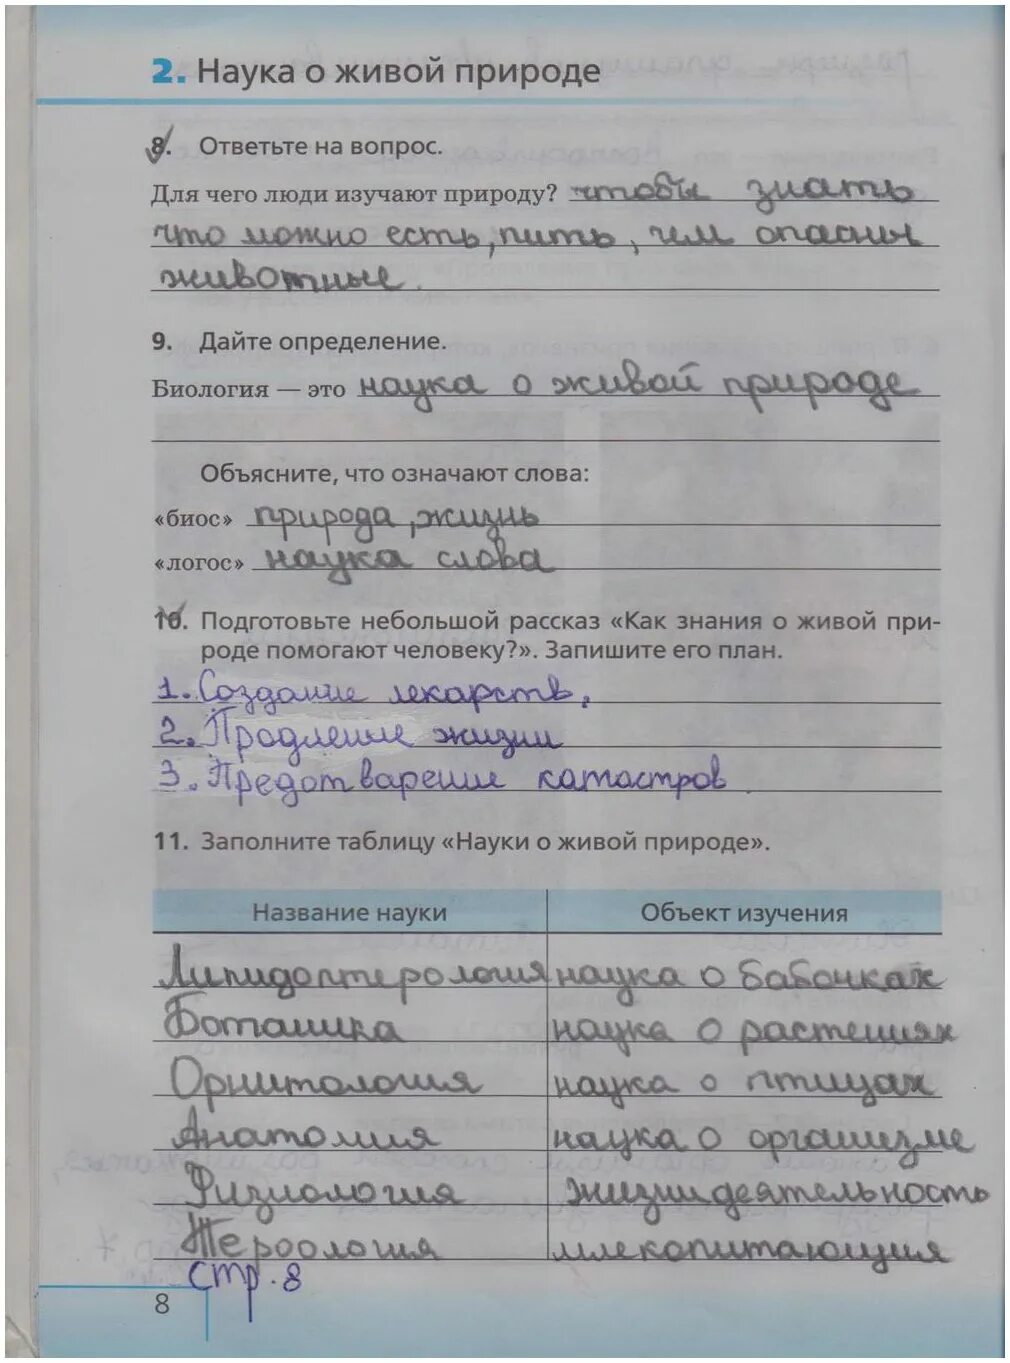 2. Наука о живой природе
8. Ответьте на вопрос.
Для чего люди изучают природу? чтобы знать
что можно есть, пить, чем опасны
животные.
9. Дайте определение.
Биология — это наука о живой природе
Объясните, что означают слова:
«биос» природа, жизнь
«логос» наука слова
10. Подготовьте небольшой рассказ «Как знания о живой при-
роде помогают человеку?». Запишите его план.
1. Создание лекарств,
2. Продление жизни
3. Предотварение катостров
11. Заполните таблицу «Науки о живой природе».
Название науки Объект изучения
Липидоптерология наука о бабочках
Ботаника наука о растениях
Орнитология наука о птицах
Анатомия наука о организме
Физиология жизнидеятельность
Тероология млекопитающия
стр. 8
8